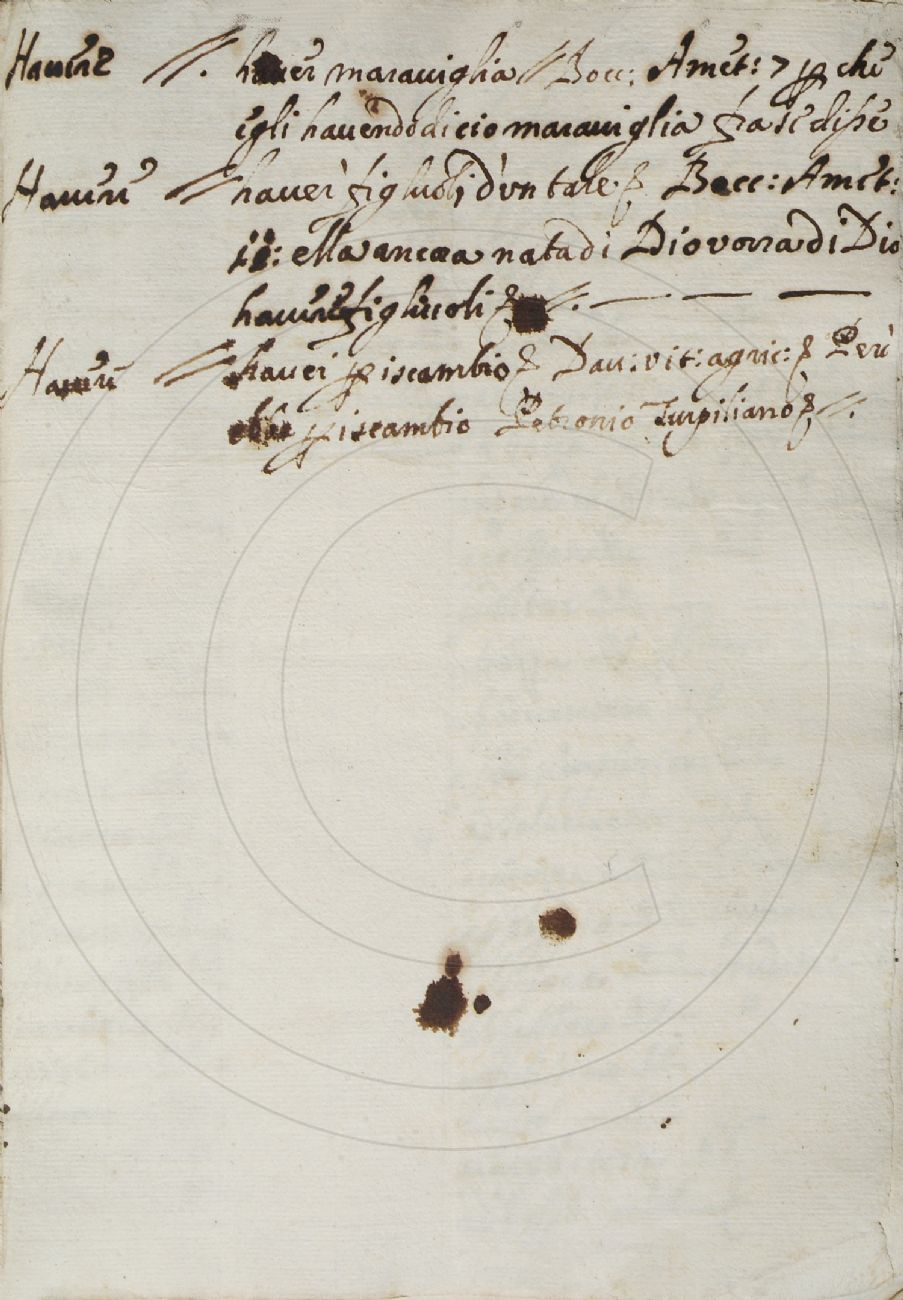 Havere //. haver maraviglia // Bocc: Amet: 7 p che
egli havendo di cio maraviglia fra se disse
Havere // haver figluoli d'un tale Bocc: Amet:
11: ella ancora nata di Dio vorra di Dio
havere figluoli //. — — —
Havere // haver p iscambio Dav: vit: agric: Perù
p iscambio Petronio Turpiliano //.